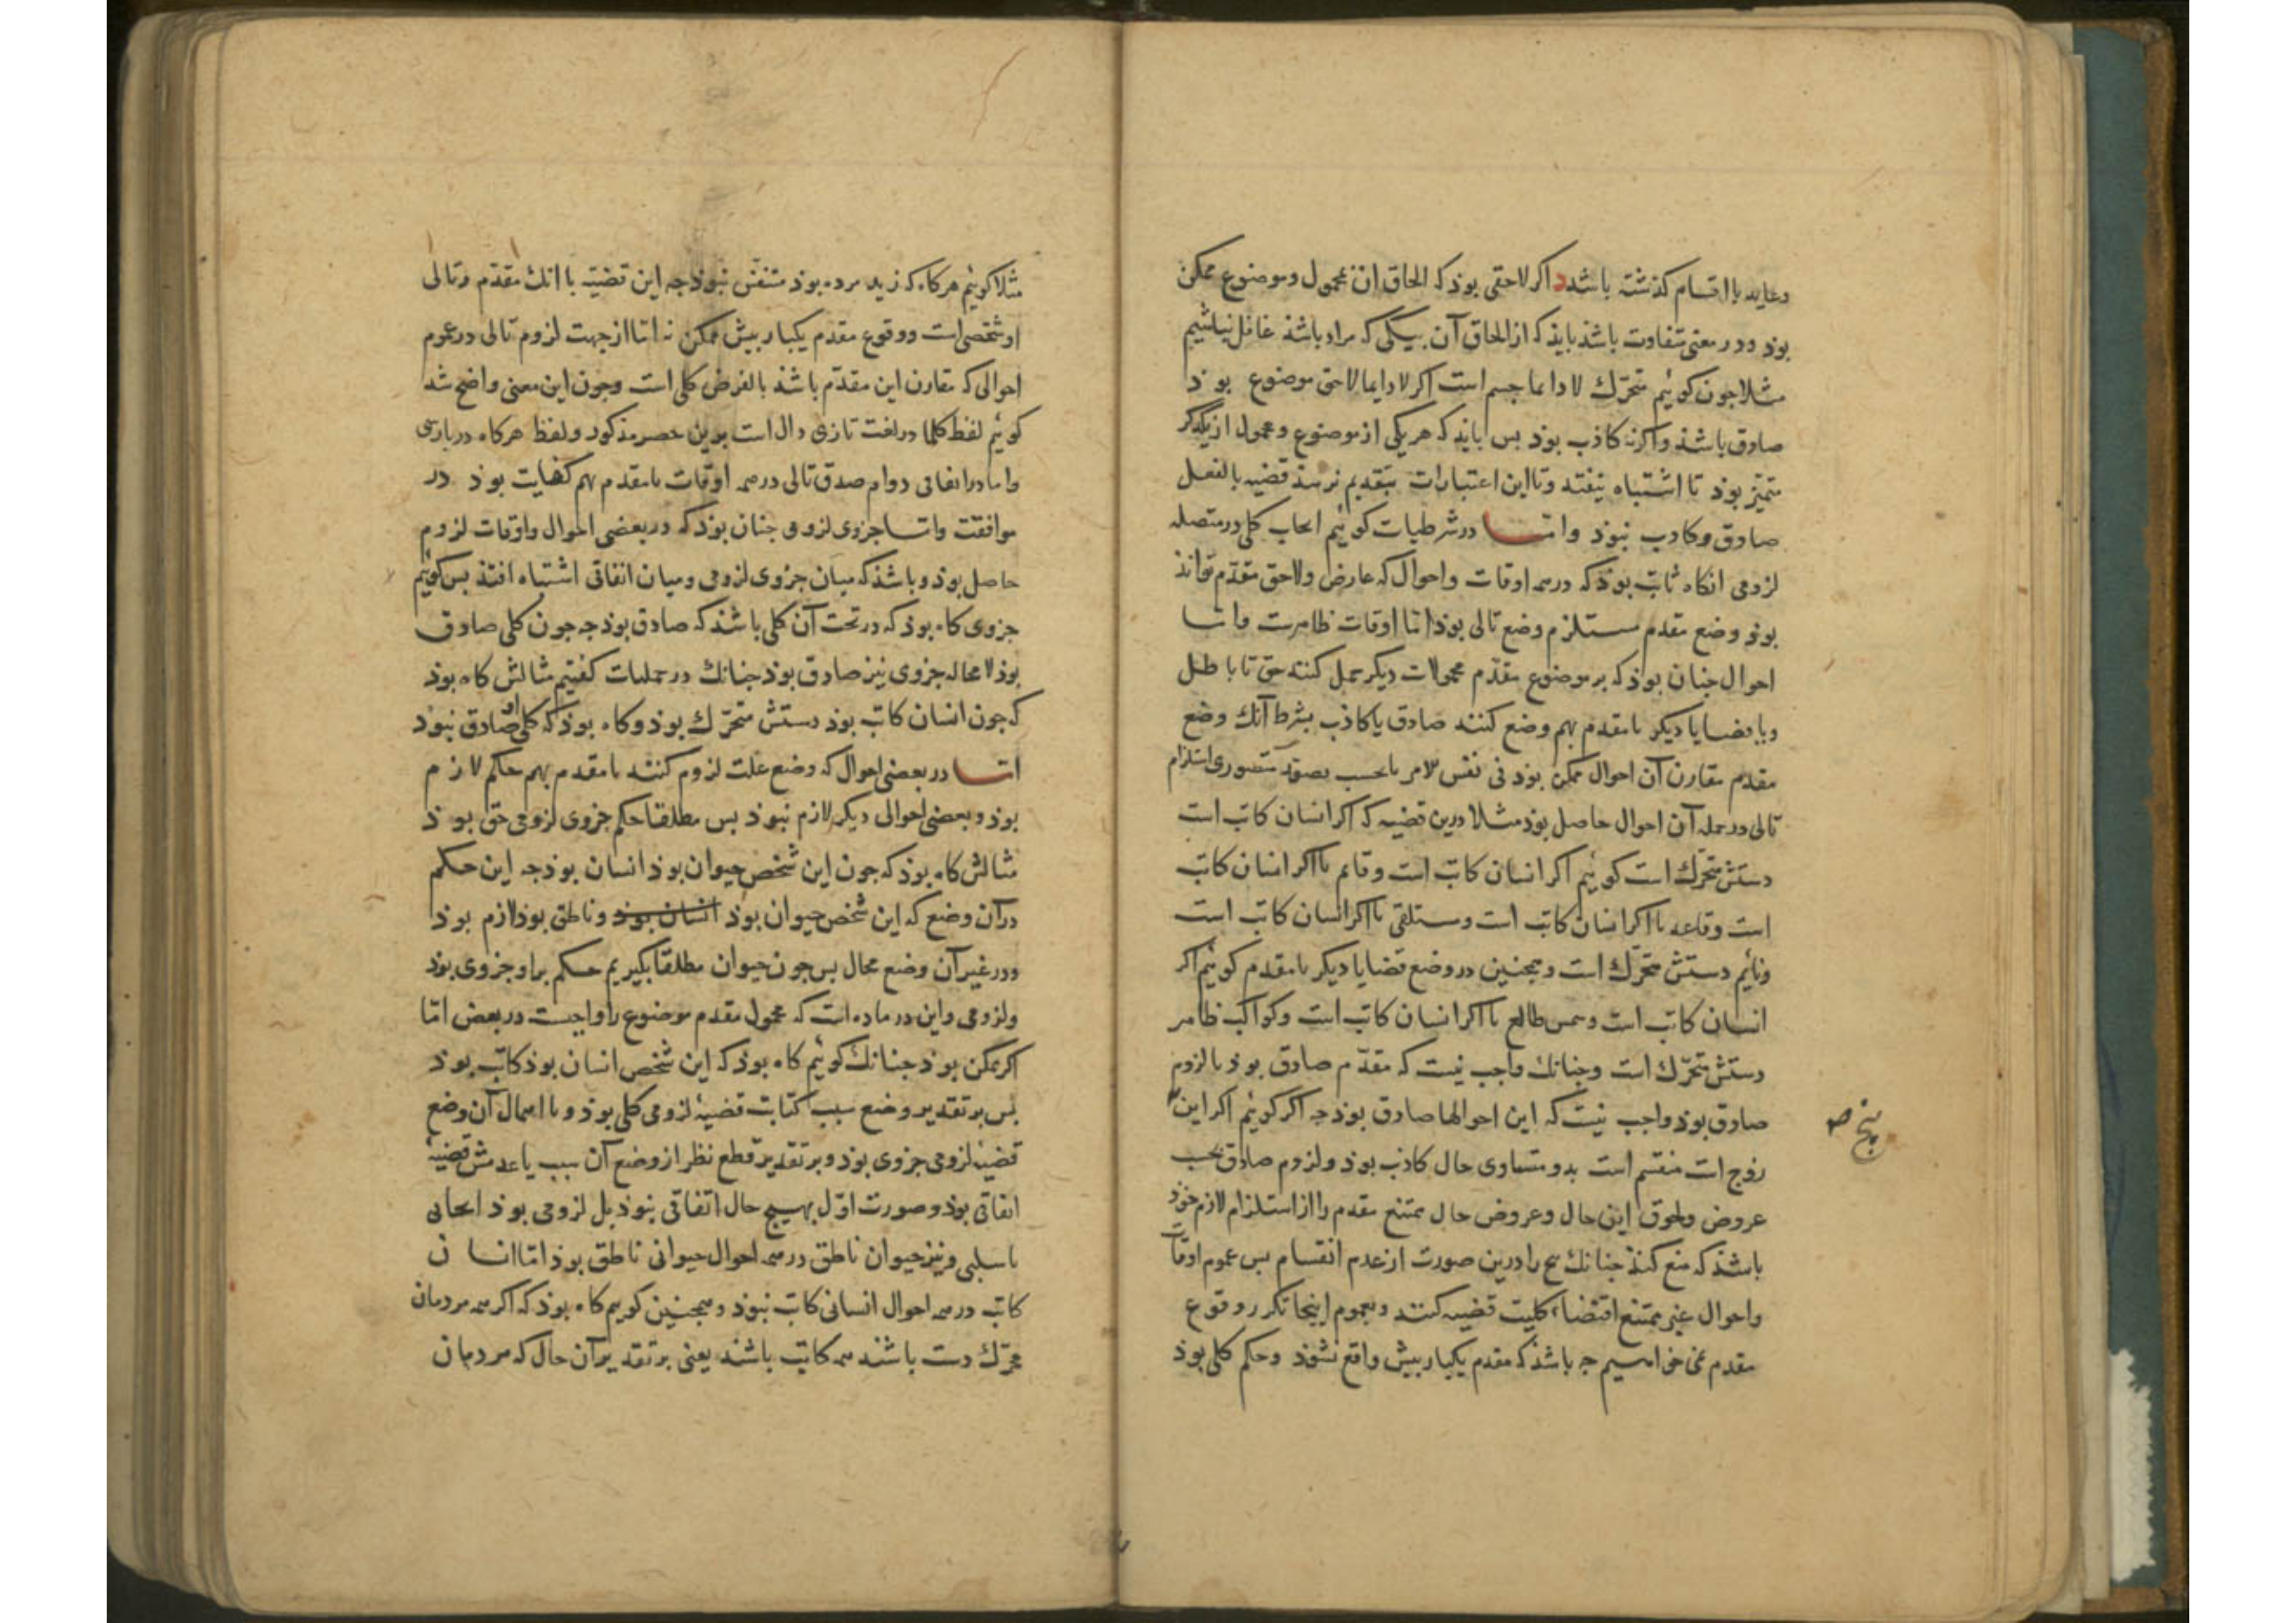 وعاید با اقسام کذشته باشد د اکر لاحقی بوذ که الحاق ان بمحمول وموضوع ممکن
بوذ ودر معنی متفاوت باشذ بایذ که از الحاق آن بیکی که مراد باشذ غافل نباشیم
مثلا جون کوئیم متحرّك لا دایما جسم است اکر لا دایما لاحق موضوع بوذ
صادق باشذ واکرنه کاذب بوذ بس بایذ که هر یکی از موضوع ومحمول از یکدکر
متمیّز بوذ تا اشتباه نیفتد وتا این اعتبارات بتقدیم نرسذ قضیه بالفعل
صادق وکاذب نبوذ واتا در شرطیات کوئیم ایجاب کلی در متصله
لزومی انکاه ثابت بوذ که در همه اوقات واحوال که عارض ولاحق مقدّم تواند
بوذ وضع مقدم مستلزم وضع تالی بوذ امّا اوقات ظاهرست وامّا
احوال جنان بوذ که بر موضوع مقدّم محمولات دیکر حمل کنند حق تا باطل
ویا قضایا دیکر با مقدم بهم وضع کنند صادق یا کاذب بشرط آنك وضع
مقدم مقارن آن احوال ممکن بوذ فی نفس الامر یا بحسب تصوّر متصوری استلزام
تالی در جمله آن احوال حاصل بوذ مثلا درین قضیه که اکر انسان کاتب است
دستش متحرّك است کوئیم اکر انسان کاتب است وقائم یا اکر انسان کاتب
است وقاعد یا اکر انسان کاتب است ومستلقی یا اکر انسان کاتب است
ونائم دستش متحرّك است وهمجنین در وضع قضایا دیکر با مقدم کوئیم اکر
انسان کاتب است وشمس طالع یا اکر انسان کاتب است وکواکب ظاهر
دستش متحرّك است وجنانك واجب نیست که مقدّم صادق بوذ یا لزوم
صادق بوذ واجب نیست که این احوالها صادق بوذ جه اکر کوئیم اکر این
پنج صح
زوج است منقسم است بدو متساوی حال کاذب بوذ ولزوم صادق بحسب
عروض ولحوق این حال وعروض حال ممتنع مقدم را از استلزام لازم خوذ
باشذ که منع کنذ جنانك پنج را درین صورت از عدم انقسام بس عموم اوقات
واحوال غیر ممتنع اقتضاء کلیت قضیه کنند وبعموم اینجا تکرر وقوع
مقدم نمی خواهیم جه باشذ که مقدم یکبار بیش واقع نشوذ وحکم کلی بوذ
مثلا کوئیم هرکاه که زید مرده بوذ متنفّس نبوذ جه این قضیّه با انك مقدّم وتالی
او شخصی است ووقوع مقدم یکبار بیش ممکن نه امّا از جهت لزوم تالی در عموم
احوالی که مقارن این مقدّم باشذ بالفرض کلی است وجون این معنی واضح شد
کوئیم لفظ کلما در لغت تازی دال است برین حصر مذکور ولفظ هرکاه در بارسی
واما در اتفاقی دوام صدق تالی در همه اوقات با مقدم بهم کفایت بوذ در
موافقت وامّا جزوی لزومی جنان بوذ که در بعضی احوال واوقات لزوم
حاصل بوذ وباشذ که میان جزوی لزومی ومیان اتفاقی اشتباه افتذ بس کوئیم
جزوی کاه بوذ که در تحت آن کلی باشذ که صادق بوذ جه جون کلی صادق
بوذ لا محاله جزوی نیز صادق بوذ جنانك در حملیات کفتیم مثالش کاه بوذ
که جون انسان کاتب بوذ دستش متحرّك بوذ وکاه بوذ که کلی او صادق نبوذ
امّا در بعضی احوال که وضع علت لزوم کنند با مقدم بهم حکم لازم
بوذ وبعضی احوالی دیکر لازم نبوذ بس مطلقا حکم جزوی لزومی حق بوذ
مثالش کاه بوذ که جون این شخص حیوان بوذ انسان بوذ جه این حکم
درآن وضع که این شخص حیوان بوذ انسان بوذ وناطق بوذ لازم بوذ
ودر غیر آن وضع محال بس جون حیوان مطلقا بکیریم حکم براو جزوی بوذ
ولزومی واین در ماده است که محمول مقدم موضوع را واجبست در بعض امّا
اکر ممکن بوذ جنانك کوئیم کاه بوذ که این شخص انسان بوذ کاتب بوذ
بس بر تقدیر وضع سبب کتابت قضیهٔ لزومی کلی بوذ وبا اهمال آن وضع
قضیهٔ لزومی جزوی بوذ وبر تقدیر قطع نظر از وضع آن سبب یا عدمش قضیهٔ
اتفاقی بوذ وصورت اوّل بهیج حال اتّفاقی نبوذ بل لزومی بوذ ایجابی
یا سلبی ونیز حیوان ناطق در همه احوال حیوانی ناطق بوذ امّا انسان
کاتب در همه احوال انسانی کاتب نبوذ وهمجنین کوئیم کاه بوذ که اکر همه مردمان
محرّك دست باشند همه کاتب باشند یعنی بر تقدیر آن حال که مردمان